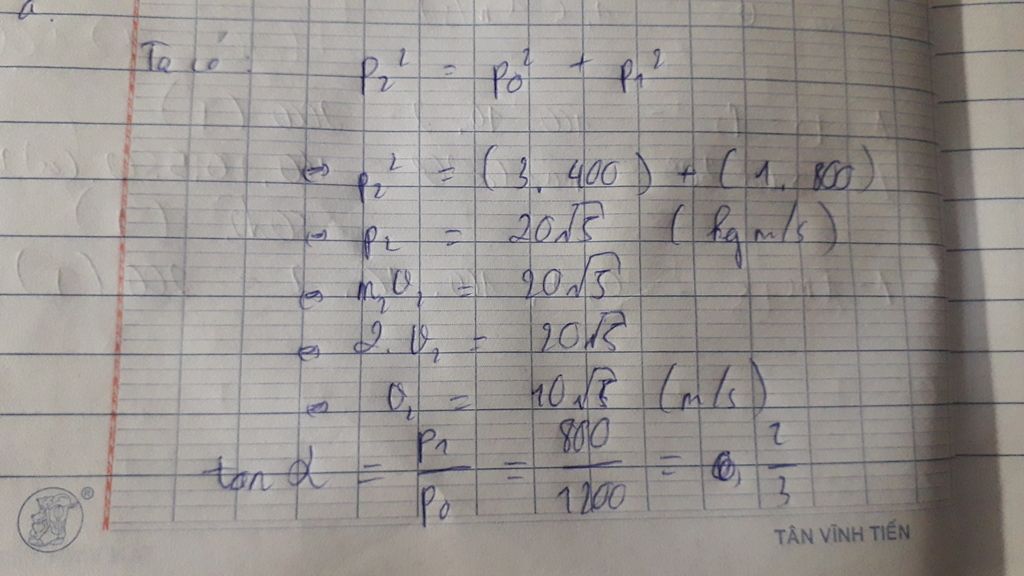 a.
Ta có: p₂² = p₀² + p₁²
⇔ p₂² = (3. 400) + (1. 800)
⇔ p₂ = 20√5 (kg m/s)
⇔ m₂v₂ = 20√5
⇔ 2.v₂ = 20√5
⇔ v₂ = 10√5 (m/s)
tan α = p₁/p₀ = 800/1200 = 2/3
®
TÂN VĨNH TIẾN